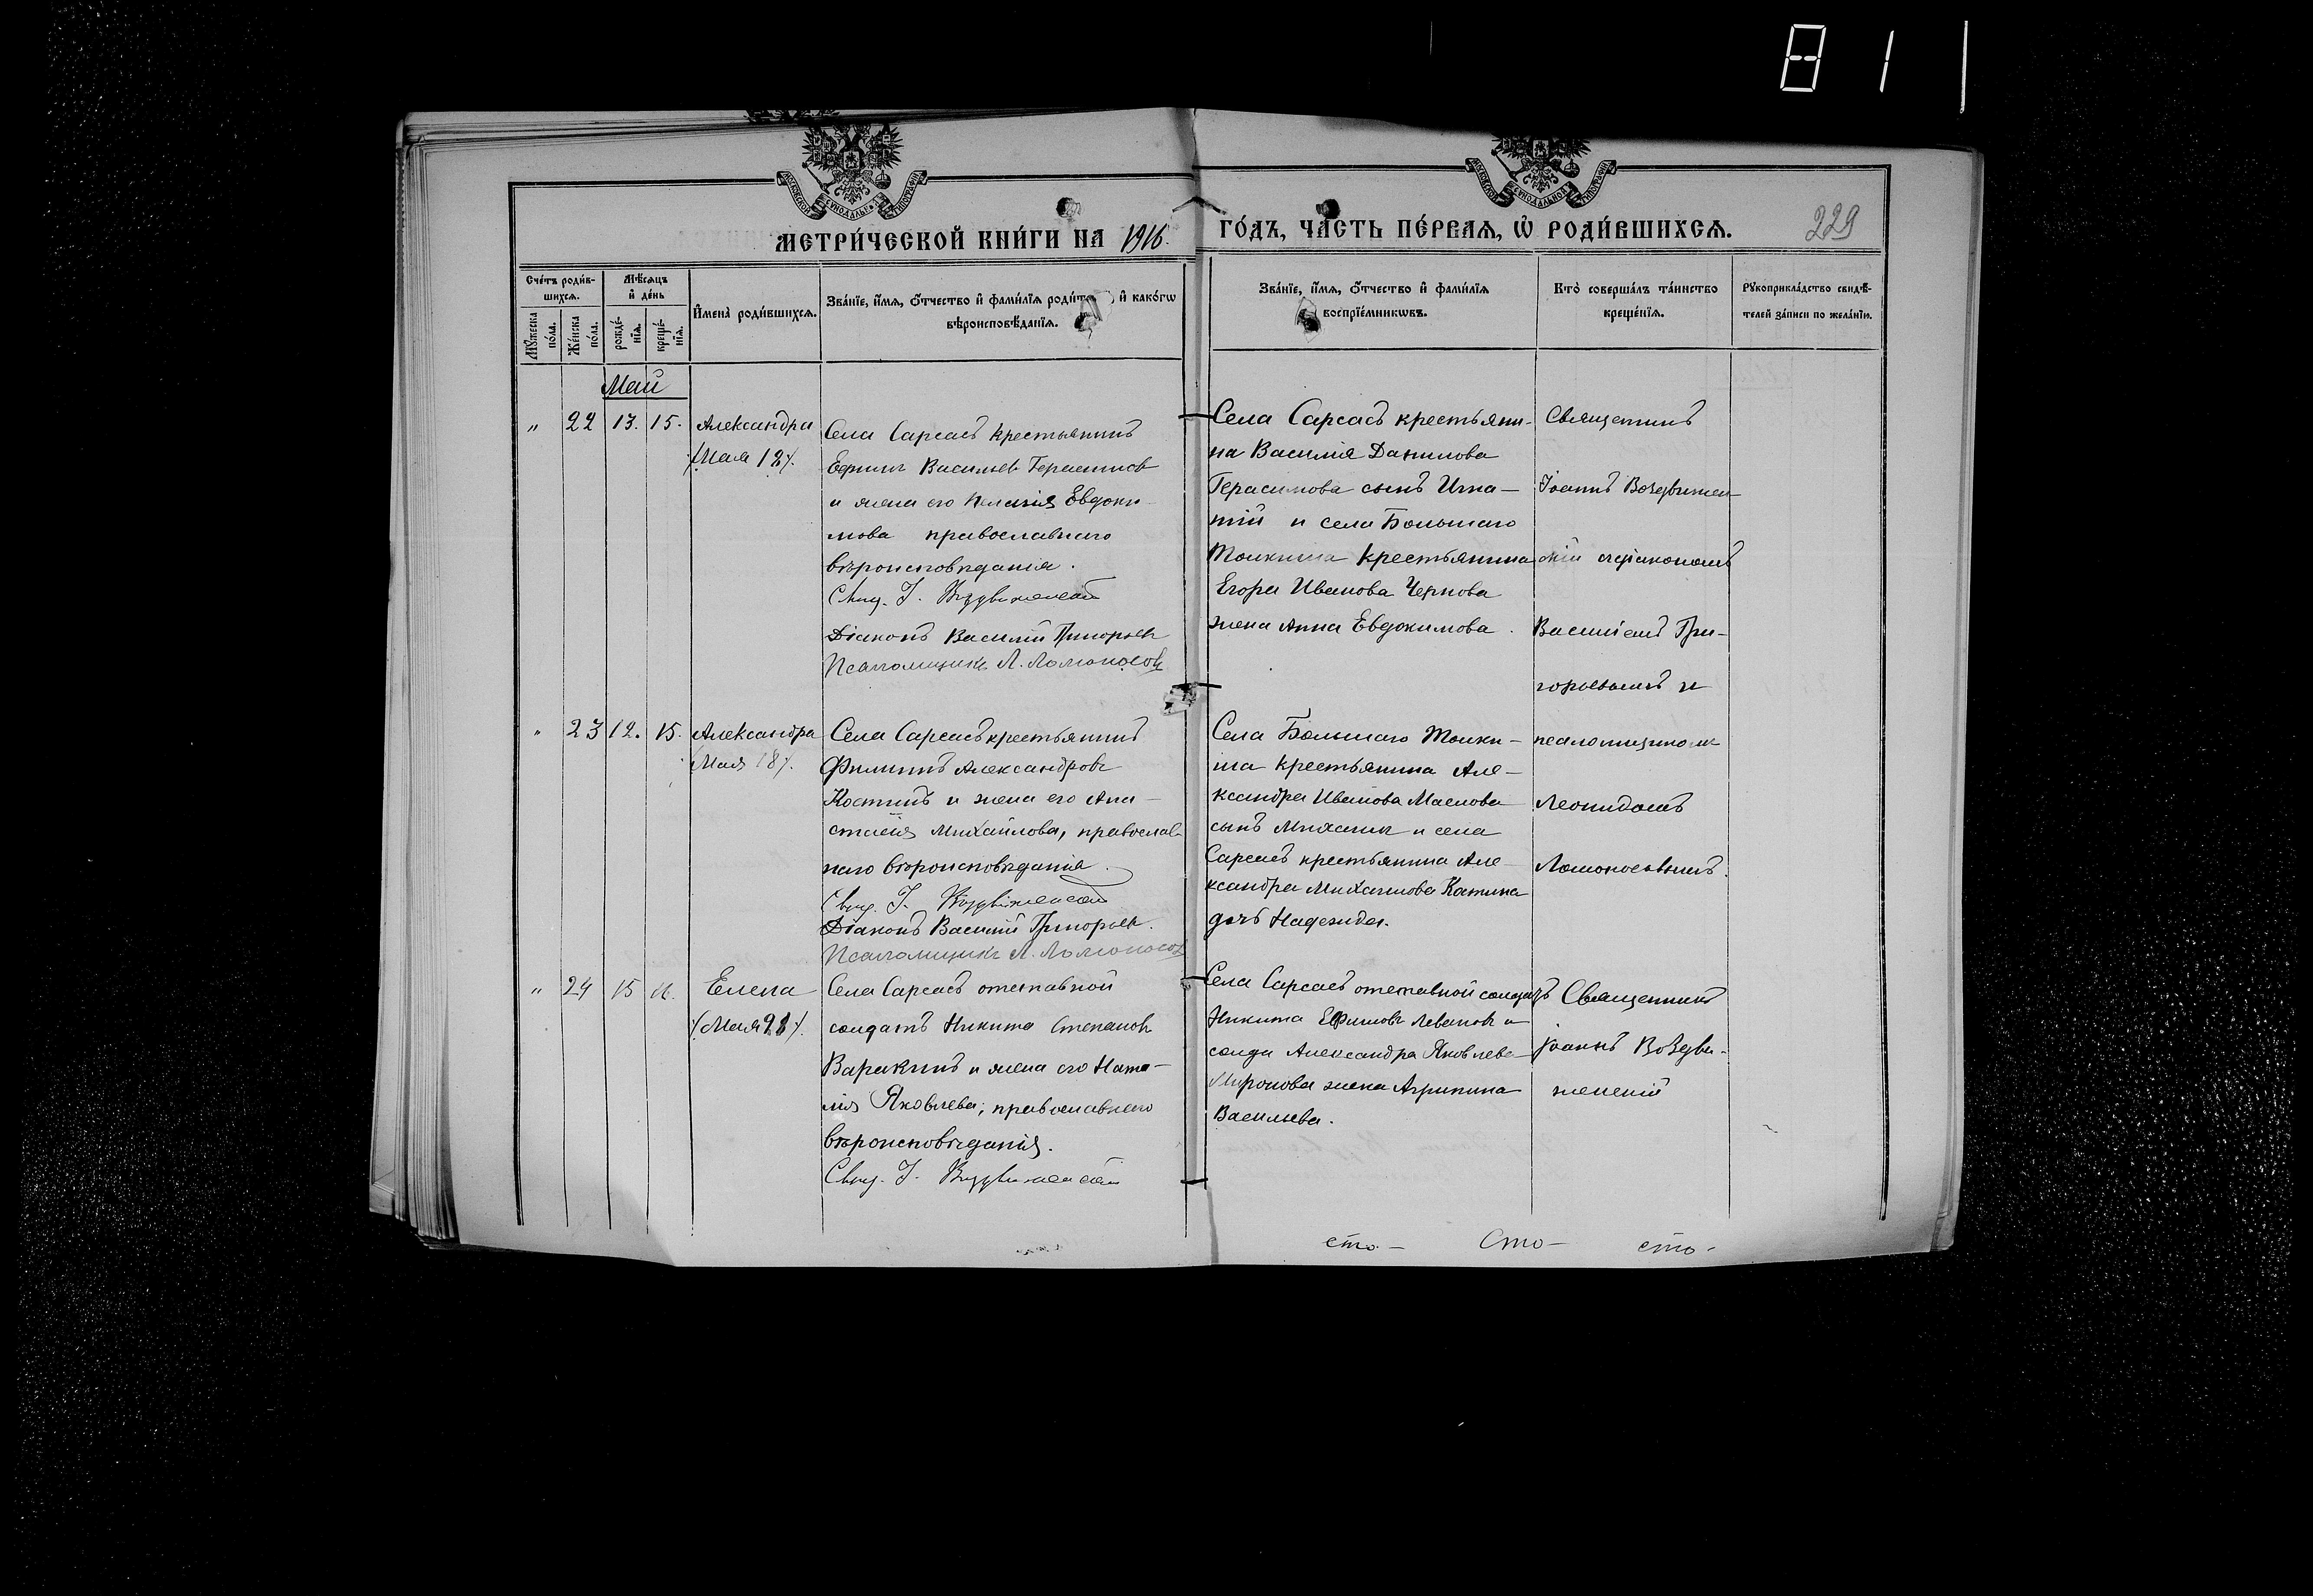 811
МЕТРИ́ЧЕСКОЙ КНИ́ГИ НА 1916. ГО́ДЪ, ЧА́СТЬ ПЕ́РВАЯ, Ѽ РОДИ́ВШИХСЯ.
229
Сче́тъ роди́в-
шихся.
Мꙋ́жеска по́ла.
Же́нска по́ла.
Мѣ́сяцъ
и҆ де́нь
рожде́-
нїя.
креще́-
нїя.
И҆мена̀ роди́вшихся.
Зва́нїе, и҆́мя, ѻ҆́тчество и҆ фами́лїя роди́те и҆ како́гѡ
вѣроисповѣ́данїя.
Зва́нїе, и҆́мя, ѻ҆́тчество и҆ фами́лїя
воспрїе́мникѡвъ.
Кто̀ соверша́лъ та́инство
креще́нїя.
Рꙋкоприкла́дство свидѣ́-
телей за́писи по жела́нїю.
Май
" 22 13. 15.
Александра
(Мая 18).
Села Сарсасъ крестьянинъ
Ефимъ Васильев Герасимов
и жена его Пелагія Евдоки
мова православнаго
вѣроисповѣданія.
Свящ. І. Воздвиженскій
Діаконъ Василій Григорьев
Псаломщикъ Л. Ломоносов
Села Сарсасъ крестьяни-
на Василія Данилова
Герасимова сынъ Игна-
тій и села Большаго
Толкиша крестьянина
Егора Иванова Чернова
жена Анна Евдокимова.
Священникъ
Іоаннъ Воздвижен-
скій съ діакономъ
Василіемъ Гри-
горьевымъ и
псаломщикомъ
Леонидомъ
Ломоносовымъ.
" 23 12. 15.
Александра
(Мая 18).
Села Сарсасъ крестьянинъ
Филиппъ Александровъ
Костинъ и жена его Ана-
стасія Михайлова, православ
наго вѣроисповѣданія.
Свящ. І. Воздвиженскій
Діаконъ Василій Григорьев.
Псаломщикъ Л. Ломоносов
Села Большаго Толки-
ша крестьянина Але-
ксандра Иванова Маслова
сынъ Михаилъ и села
Сарсасъ крестьянина Але-
ксандра Михаилова
дочь Надежда.
" 24 15 16.
Елена
(Мая 21).
Села Сарсасъ отставной
солдатъ Никита Степановъ
Варакинъ и жена его Ната-
лія Яковлева, православнаго
вѣроисповѣданія.
Свящ. І. Воздвиженскій
Села Сарсасъ отставной солдатъ
Никита Ефимовъ Левановъ и
солда Александра Яковлева
Миронова жена Агрипина
Васильева.
Священникъ
Іоаннъ Воздви-
женскій
сто- Сто- сто-